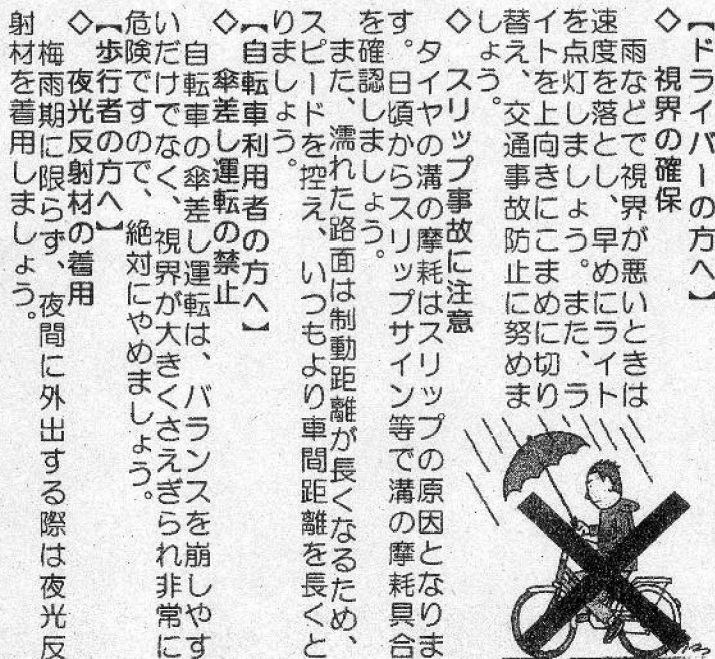 【ドライバーの方へ】
◇　視界の確保
　雨などで視界が悪いときは
速度を落とし、早めにライト
を点灯しましょう。また、ラ
イトを上向きにこまめに切り
替え、交通事故防止に努めま
しょう。
◇　スリップ事故に注意
　タイヤの溝の摩耗はスリップの原因となりま
す。日頃からスリップサイン等で溝の摩耗具合
を確認しましょう。
　また、濡れた路面は制動距離が長くなるため、
スピードを控え、いつもより車間距離を長くと
りましょう。
【自転車利用者の方へ】
◇　傘差し運転の禁止
　自転車の傘差し運転は、バランスを崩しやす
いだけでなく、視界が大きくさえぎられ非常に
危険ですので、絶対にやめましょう。
【歩行者の方へ】
◇　夜光反射材の着用
　梅雨期に限らず、夜間に外出する際は夜光反
射材を着用しましょう。